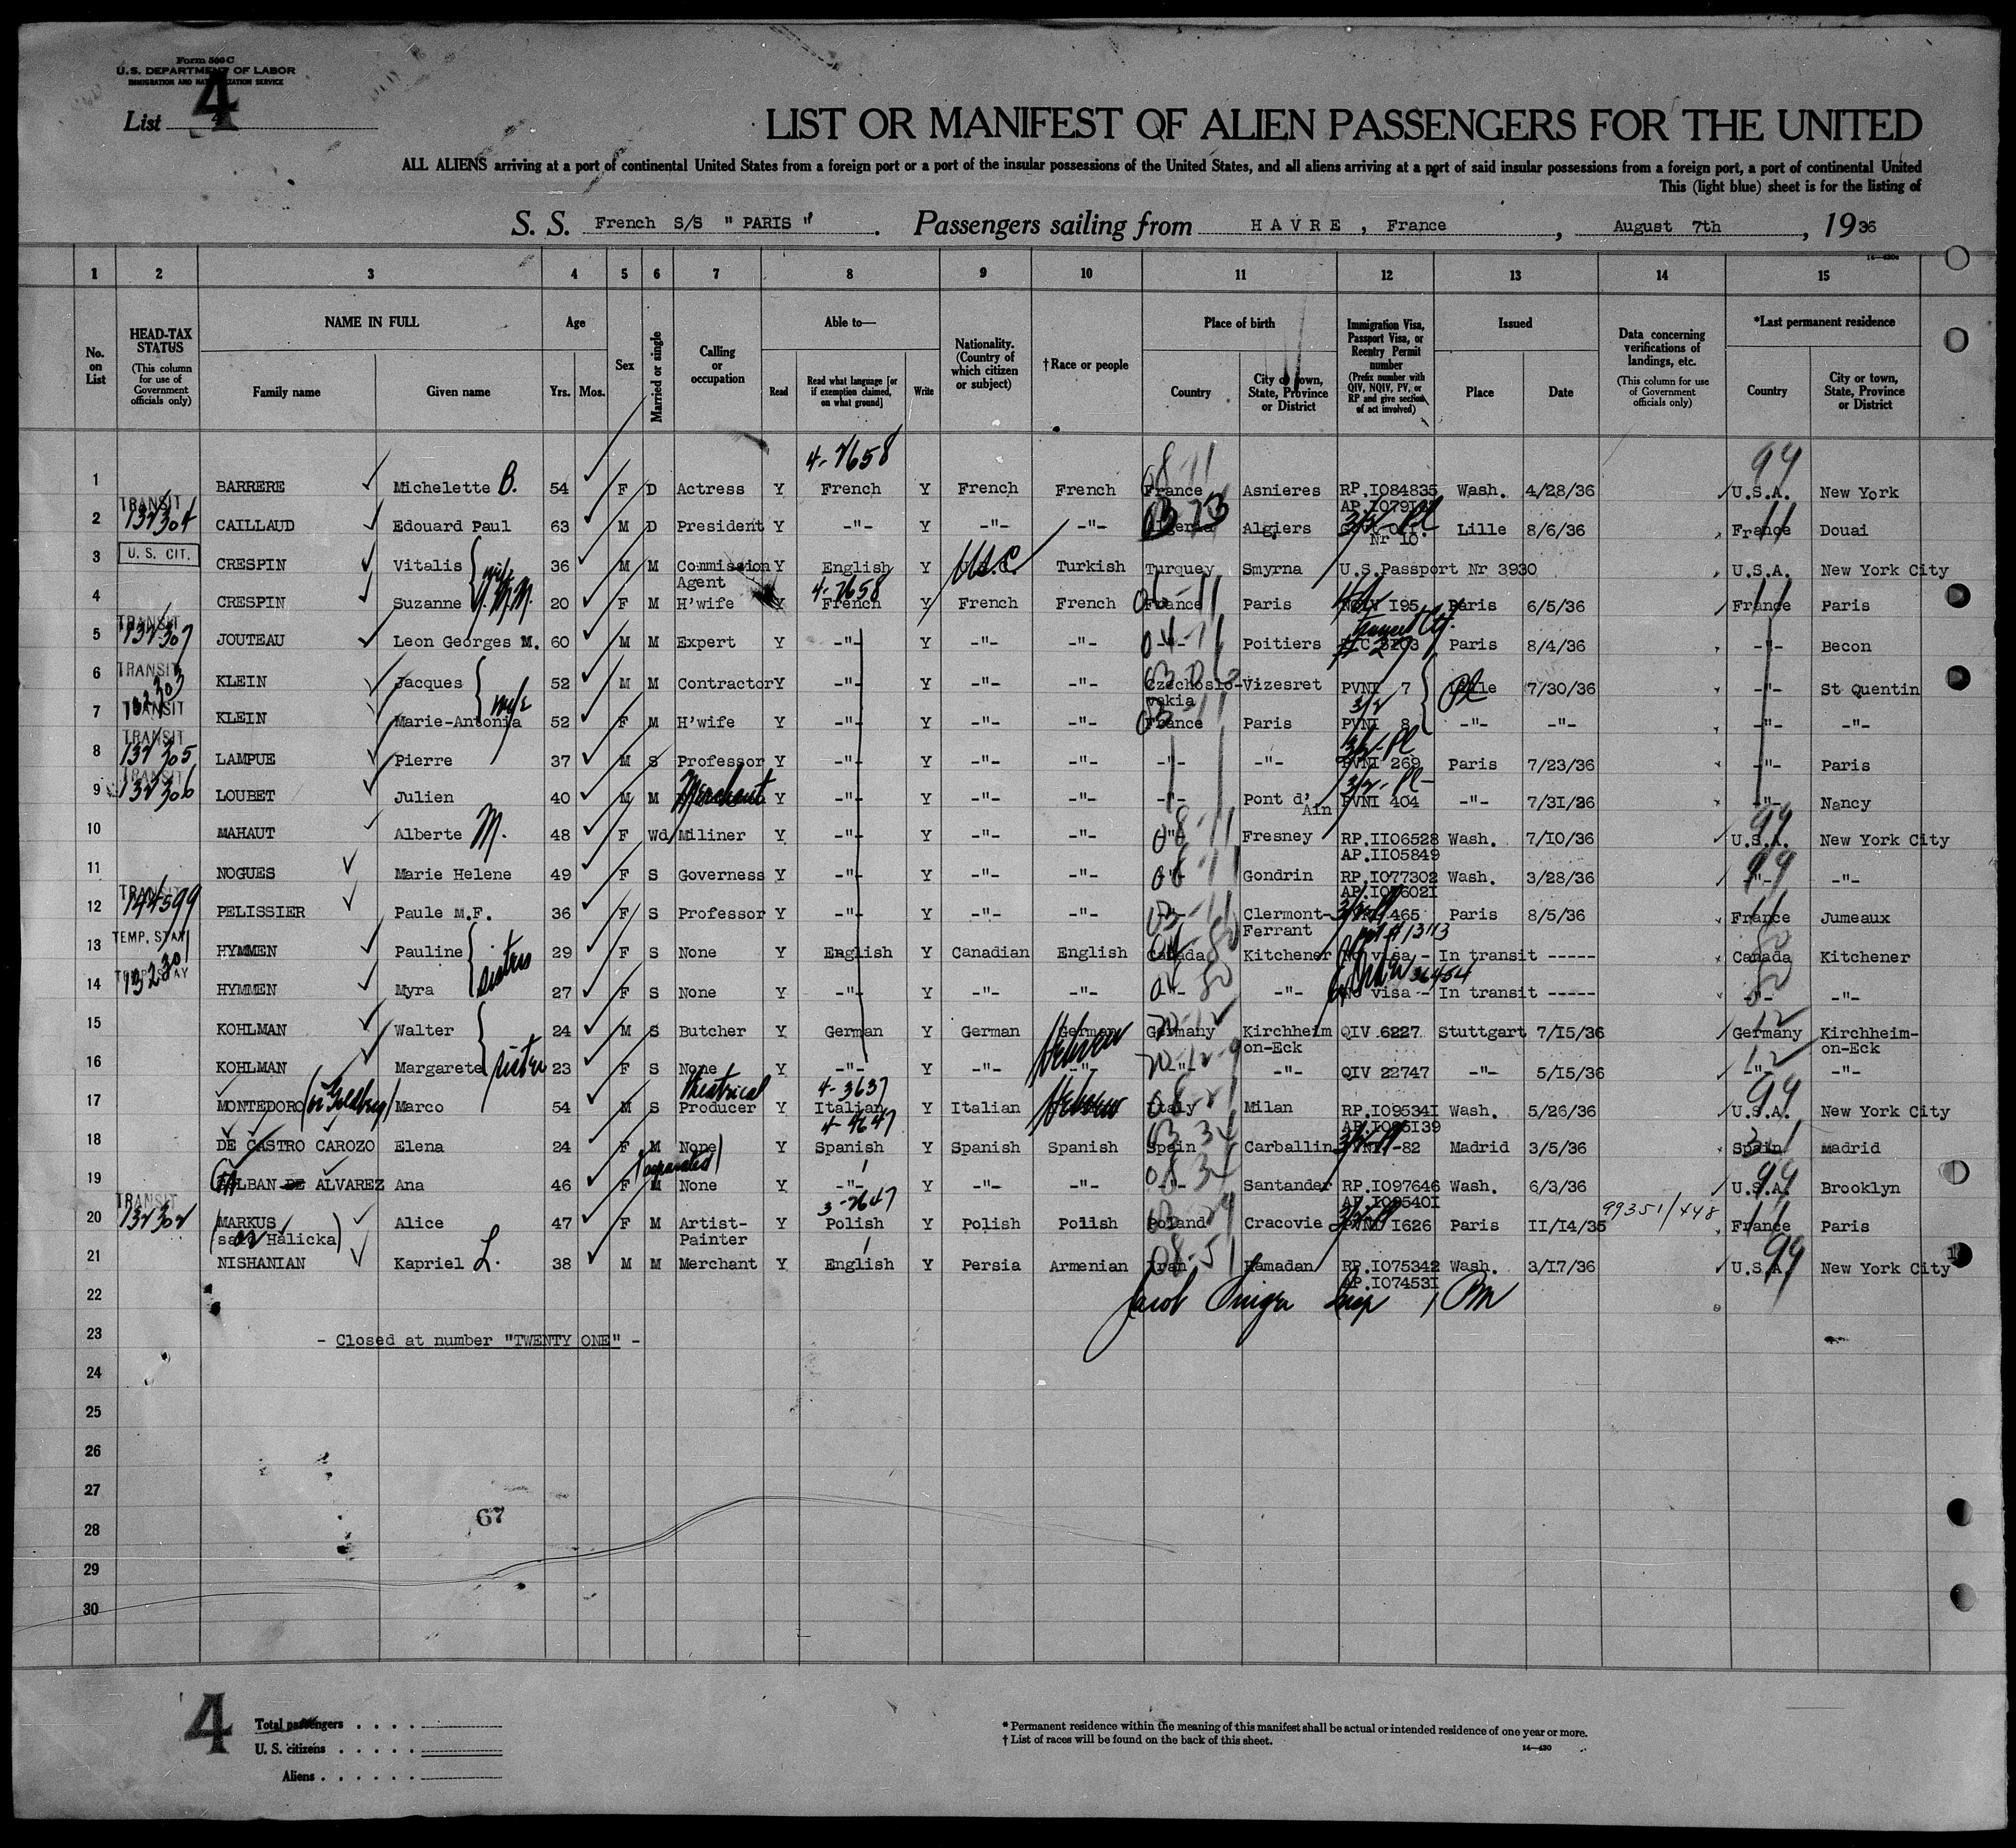 Form 500 C
U.S. DEPARTMENT OF LABOR
IMMIGRATION AND NATURALIZATION SERVICE
List 4
LIST OR MANIFEST OF ALIEN PASSENGERS FOR THE UNITED
ALL ALIENS arriving at a port of continental United States from a foreign port or a port of the insular possessions of the United States, and all aliens arriving at a port of said insular possessions from a foreign port, a port of continental United
This (light blue) sheet is for the listing of
S. S. French S/S " PARIS " . Passengers sailing from H A V R E , France , August 7th , 1936
14—430a
1 2 3 4 5 6 7 8 9 10 11 12 13 14 15
No. on List
HEAD-TAX STATUS (This column for use of Government officials only)
NAME IN FULL Family name Given name
Age Yrs. Mos.
Sex
Married or single
Calling or occupation
Able to— Read Read what language [or if exemption claimed, on what ground] Write
Nationality. (Country of which citizen or subject)
†Race or people
Place of birth Country City or town, State, Province or District
Immigration Visa, Passport Visa, or Reentry Permit number (Prefix number with QIV, NQIV, PV, or RP and give section of act involved)
Issued Place Date
Data concerning verifications of landings, etc. (This column for use of Government officials only)
*Last permanent residence Country City or town, State, Province or District
4-7658 08-11 99
1 BARRERE Michelette B. 54 F D Actress Y French Y French French France Asnieres RP.I084835 Wash. 4/28/36 U.S.A. New York
TRANSIT
2 132304 CAILLAUD Edouard Paul 63 M D President Y -"- Y -"- -"- Algeria Algiers Nr 10 Lille 8/6/36 France Douai
3 U. S. CIT. CRESPIN Vitalis 36 M M Commission Agent Y English Y U.S.C. Turkish Turquey Smyrna U.S.Passport Nr 3930 U.S.A. New York City
wife 4-7658
4 CRESPIN Suzanne 20 F M H'wife Y French Y French French France Paris NQIV I95 Paris 6/5/36 France Paris
TRANSIT
5 132307 JOUTEAU Leon Georges M. 60 M M Expert Y -"- Y -"- -"- -"- Poitiers Paris 8/4/36 -"- Becon
TRANSIT
6 132303 KLEIN Jacques 52 M M Contractor Y -"- Y -"- -"- Czechoslovakia Vizesret PVNI 7 Lille 7/30/36 -"- St Quentin
TRANSIT wife
7 KLEIN Marie-Antonia 52 F M H'wife Y -"- Y -"- -"- France Paris PVNI 8 -"- -"- -"- -"-
TRANSIT
8 132305 LAMPUE Pierre 37 M S Professor Y -"- Y -"- -"- -"- -"- PVNI 269 Paris 7/23/36 -"- Paris
TRANSIT
9 132306 LOUBET Julien 40 M M Merchant Y -"- Y -"- -"- -"- Pont d'Ain PVNI 404 -"- 7/31/36 -"- Nancy
10 MAHAUT Alberte M. 48 F Wd Miliner Y -"- Y -"- -"- -"- Fresney RP.II06528 Wash. 7/10/36 U.S.A. New York City
AP.II05849
11 NOGUES Marie Helene 49 F S Governess Y -"- Y -"- -"- -"- Gondrin RP.I077302 Wash. 3/28/36 -"- -"-
TRANSIT AP.I076021
12 144599 PELISSIER Paule M.F. 36 F S Professor Y -"- Y -"- -"- -"- Clermont-Ferrant PVNI 465 Paris 8/5/36 France Jumeaux
TEMP. STAY
13 HYMMEN Pauline 29 F S None Y English Y Canadian English Canada Kitchener No visa - In transit ----- Canada Kitchener
132301 TEMP. STAY sisters
14 HYMMEN Myra 27 F S None Y -"- Y -"- -"- -"- -"- No visa - In transit ----- -"- -"-
15 KOHLMAN Walter 24 M S Butcher Y German Y German German Germany Kirchheim on-Eck QIV 6227 Stuttgart 7/15/36 Germany Kirchheim-on-Eck
sister Hebrew
16 KOHLMAN Margarete 23 F S None Y -"- Y -"- -"- -"- -"- QIV 22747 -"- 5/15/36 -"- -"-
Theatrical 4-3637
17 MONTEDORO (or Goldberg) Marco 54 M S Producer Y Italian Y Italian Hebrew Italy Milan RP.I09534I Wash. 5/26/36 U.S.A. New York City
4-4647 AP.I095I39
18 DE CASTRO CAROZO Elena 24 F M None Y Spanish Y Spanish Spanish Spain Carballin PVNI-82 Madrid 3/5/36 Spain Madrid
(separated)
19 GALBAN DE ALVAREZ Ana 46 F M None Y -"- Y -"- -"- -"- Santander RP.I097646 Wash. 6/3/36 U.S.A. Brooklyn
TRANSIT 3-7647 AP.I09540I
20 132302 MARKUS Alice 47 F M Artist-Painter Y Polish Y Polish Polish Poland Cracovie PVNI I626 Paris II/14/35 99351/448 France Paris
(said or Halicka)
21 NISHANIAN Kapriel L. 38 M M Merchant Y English Y Persia Armenian Iran Hamadan RP.I075342 Wash. 3/17/36 U.S.A. New York City
AP.I07453I
22 Jacob
23 - Closed at number "TWENTY ONE" -
24
25
26
27
67
28
29
30
4
Total passengers . . . .
U. S. citizens . . . . .
Aliens . . . . . .
* Permanent residence within the meaning of this manifest shall be actual or intended residence of one year or more.
† List of races will be found on the back of this sheet.
14—430